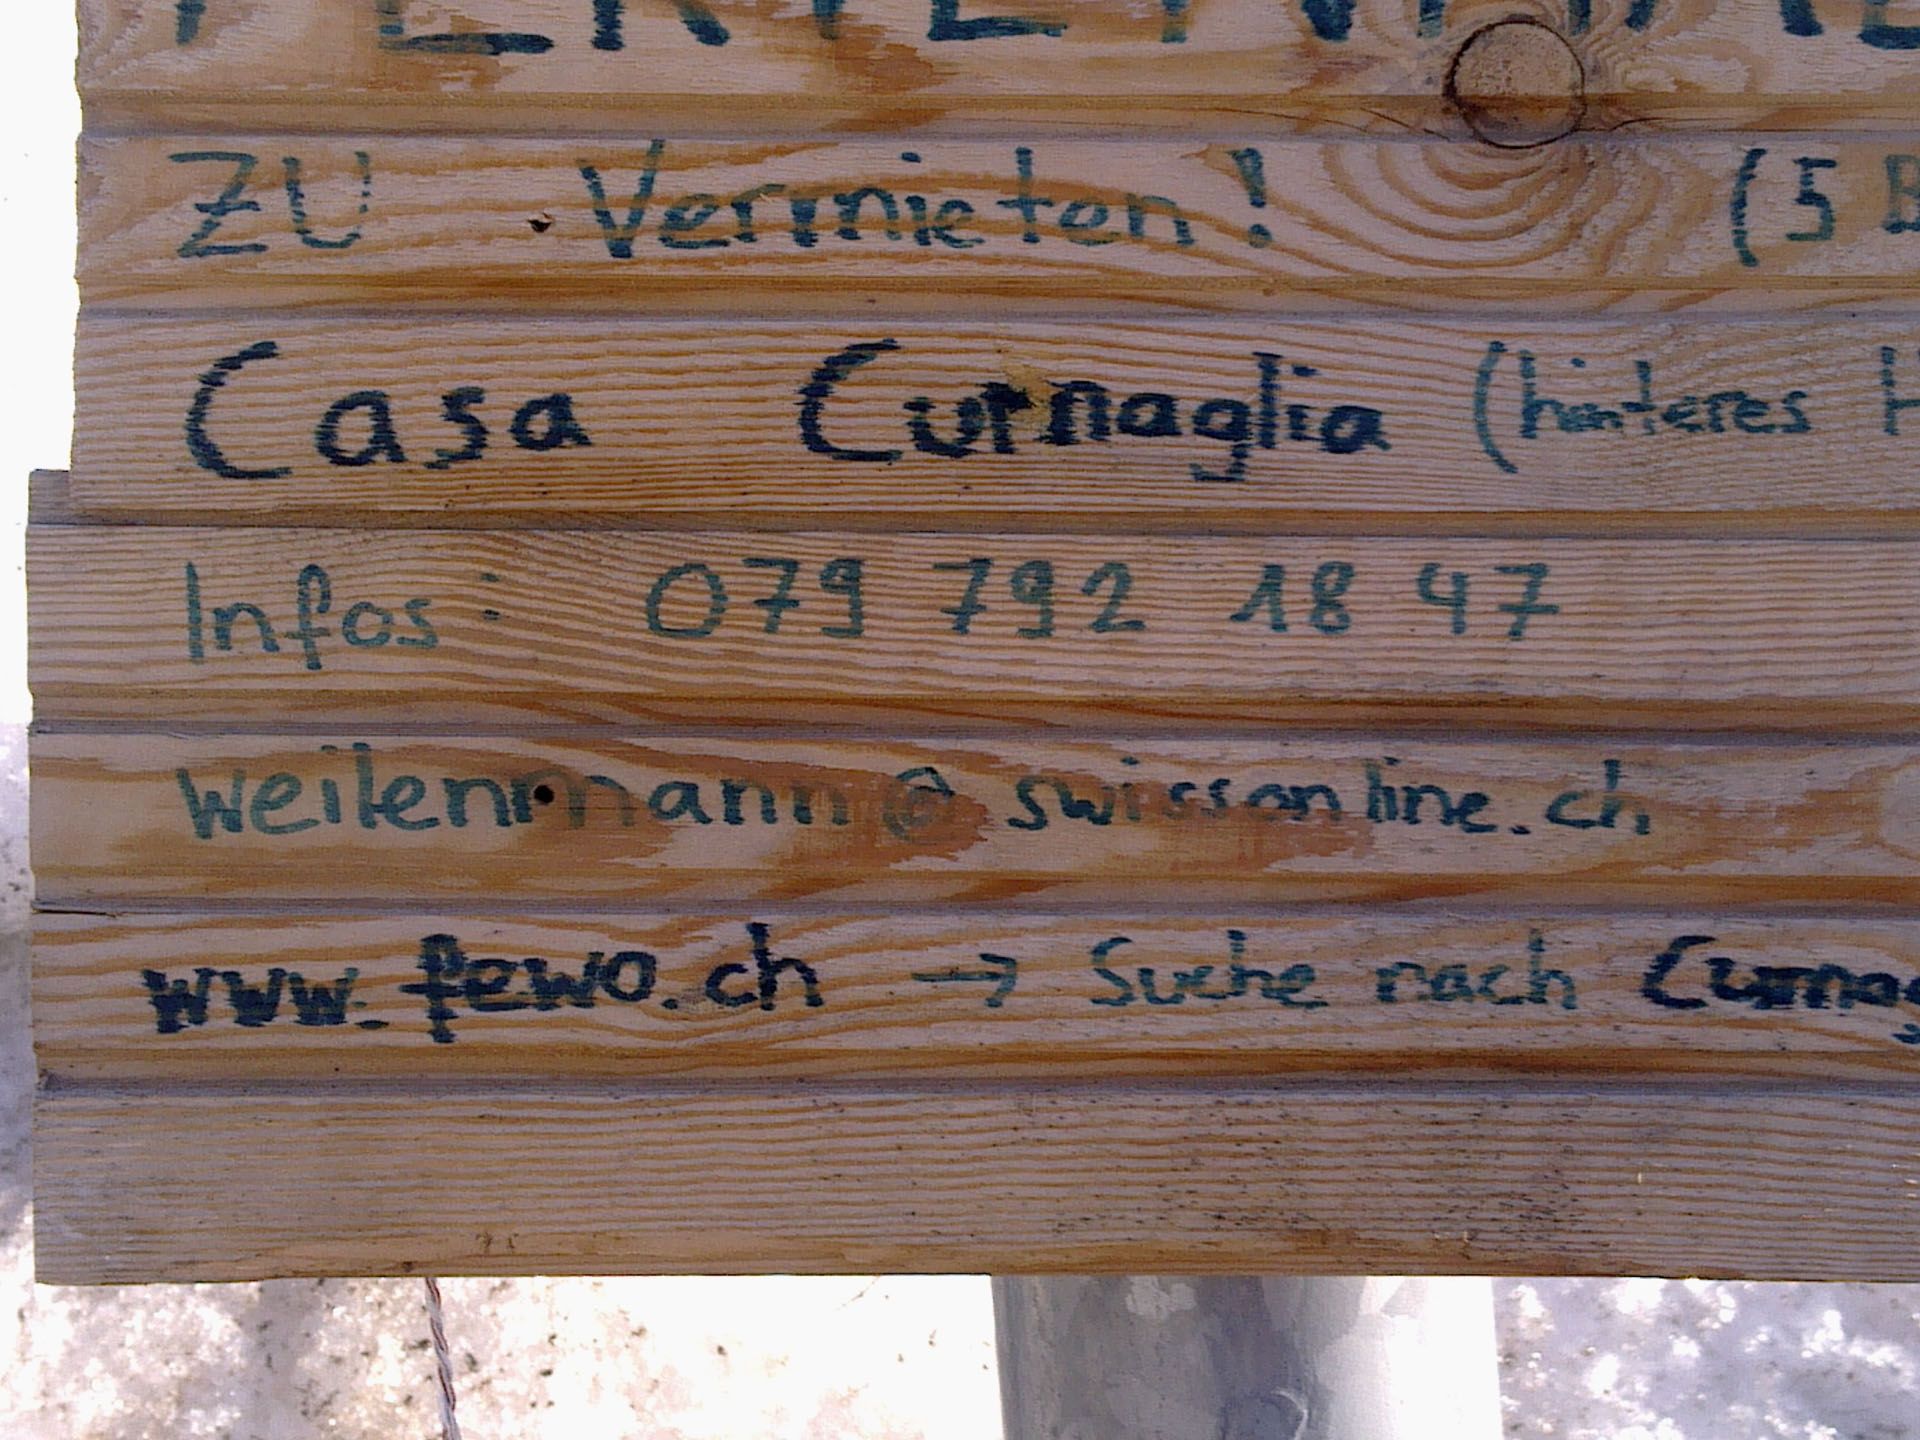 ZU Vermieten! (5 B
Casa Curnaglia (hinteres H
Infos: 079 792 18 47
weilenmann@swissonline.ch
www.fewo.ch → Suche nach Curnag